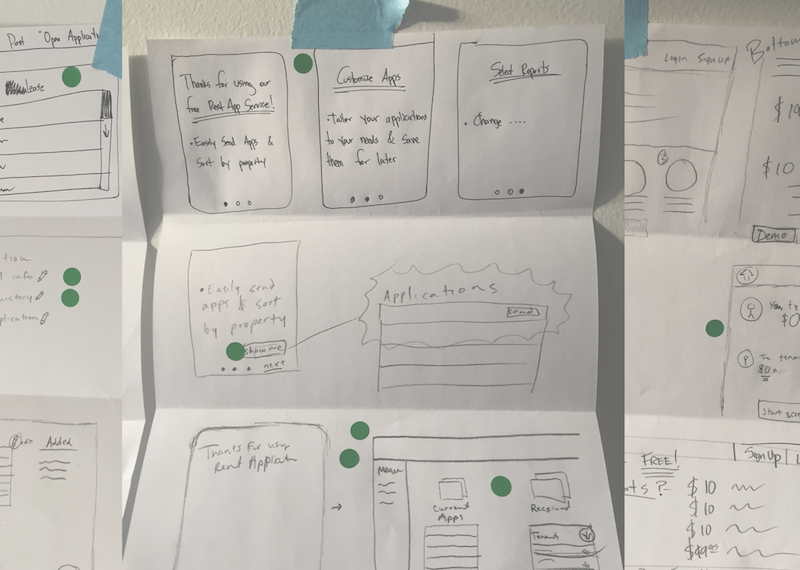 Post "Open Applicati
lease
info
application
Edit Added
Thanks for using our
free Rent App Service!
• Easily Send Apps &
sort by property
Customize Apps
• Tailor your applications
to your needs & save
them for later
Select Reports
• Change ....
• Easily send
apps & sort
by property
show me
next
Applications
send
Thanks For using
Rent Applicat
→
Menu
Current
Apps
Tenants
Login Sign Up
Bottom
$10
Demo
$0
FREE!
Sign Up
$10
$10
$10
$49.99